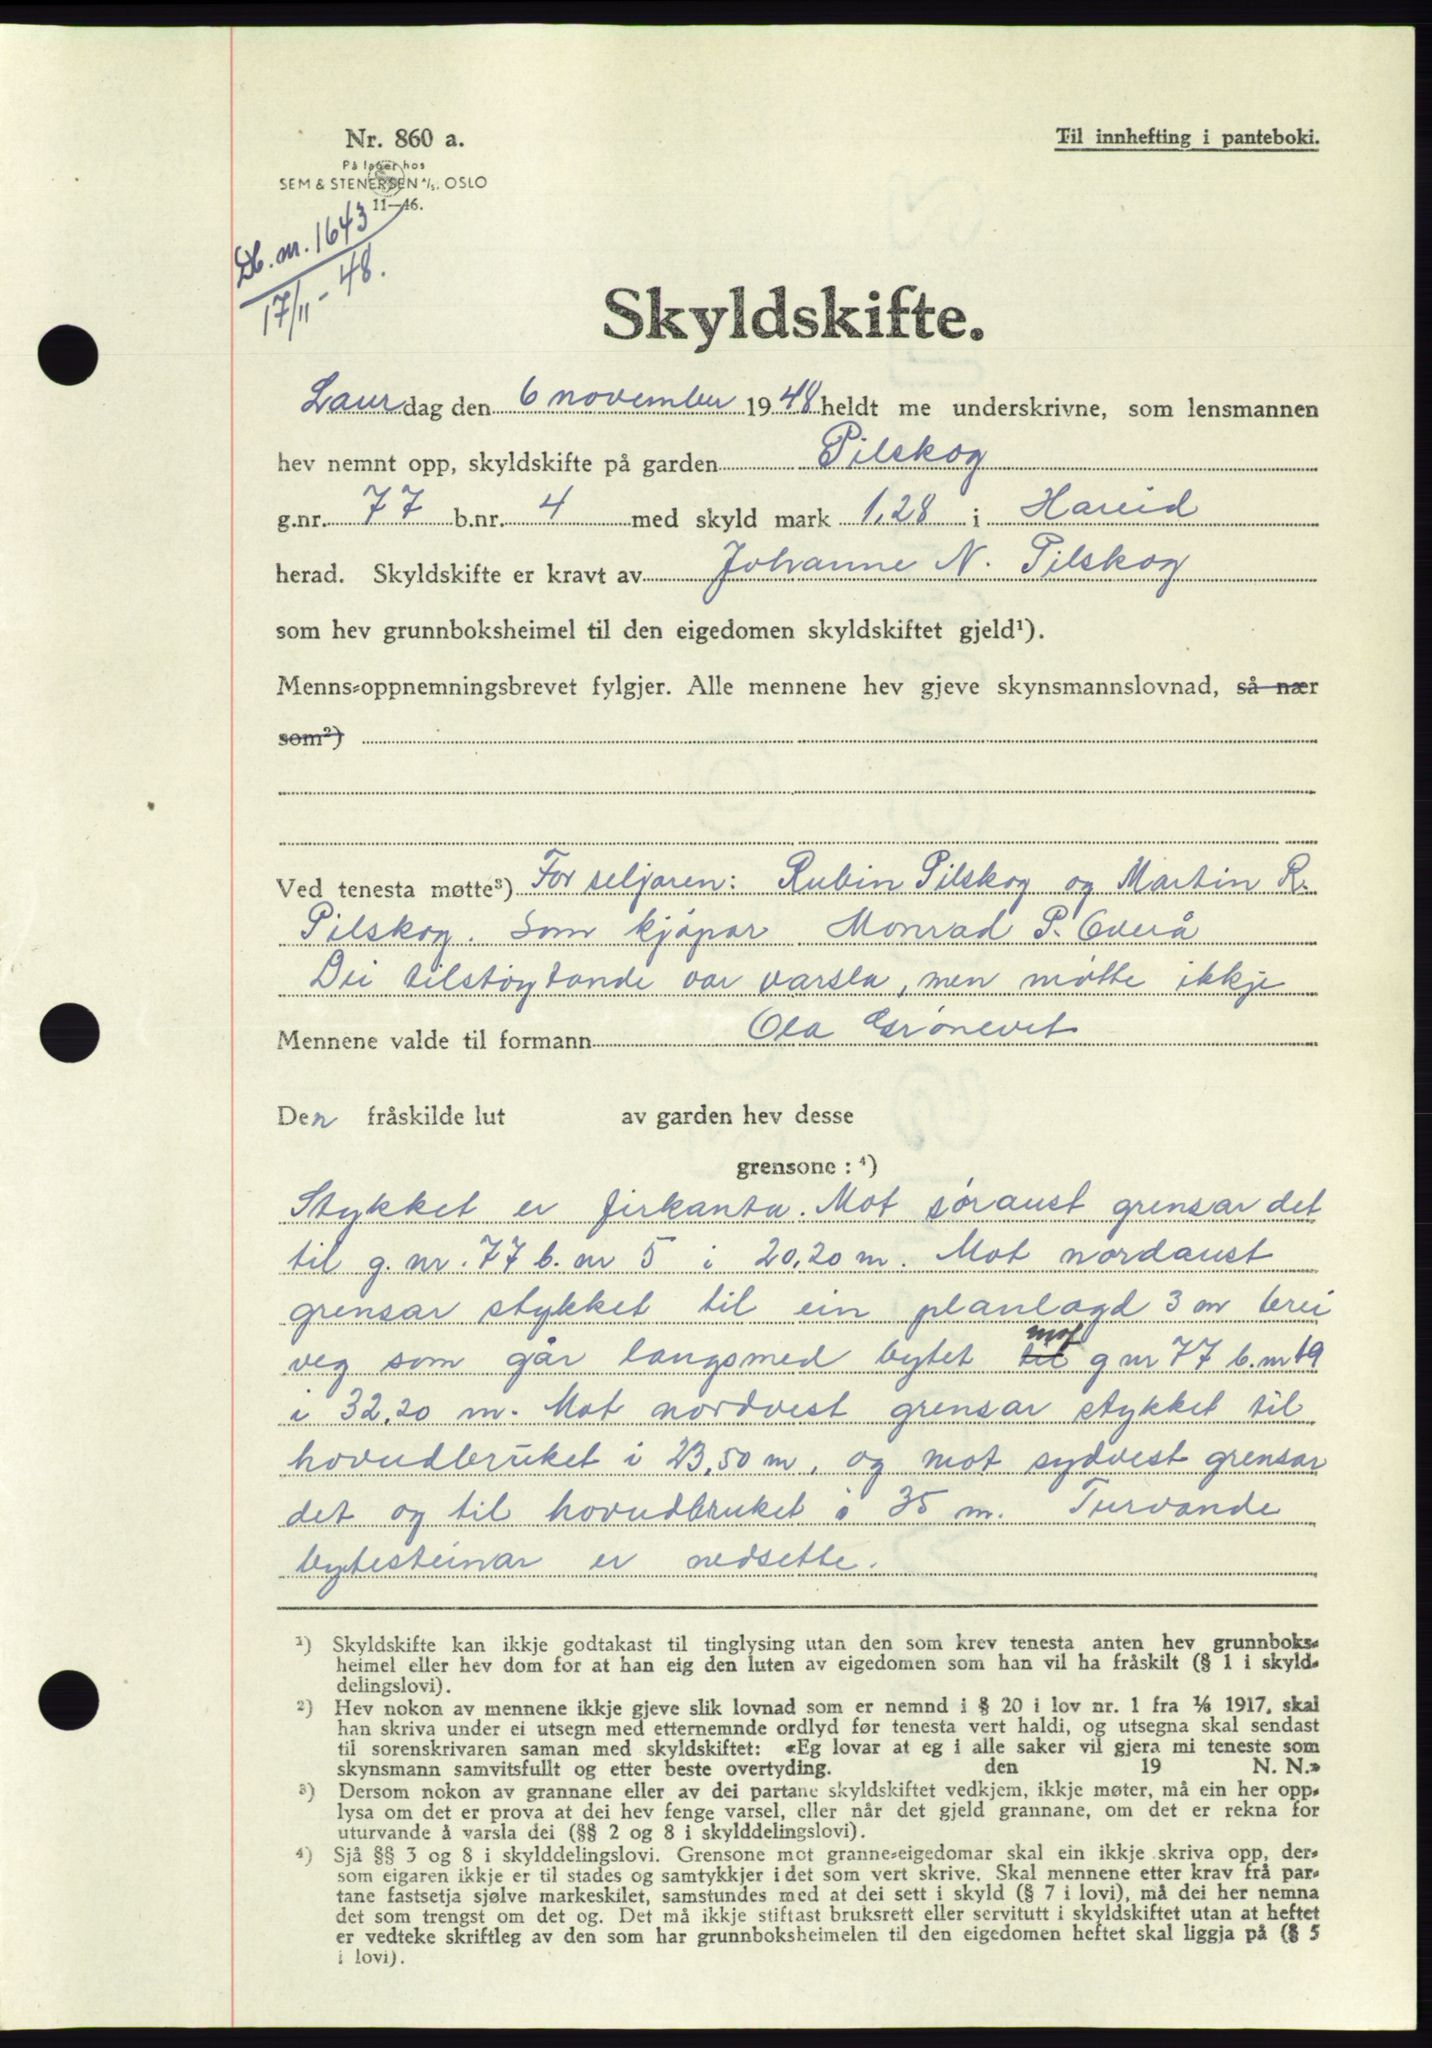 Nr. 860 a.
På lager hos
SEM & STENERSEN A/S, OSLO
11—46.
Til innhefting i panteboki.
Db. nr. 1643
17/11 - 48.
Skyldskifte.
Laurdag den 6 november 1948 heldt me underskrivne, som lensmannen
hev nemnt opp, skyldskifte på garden Pilskog
g.nr. 77 b.nr. 4 med skyld mark 1,28 i Hareid
herad. Skyldskifte er kravt av Johanne N. Pilskog
som hev grunnboksheimel til den eigedomen skyldskiftet gjeld¹).
Menns-oppnemningsbrevet fylgjer. Alle mennene hev gjeve skynsmannslovnad, så nær
som²)
Ved tenesta møtte³) For seljaren: Rubin Pilskog og Martin R.
Pilskog. Som kjøpar Monrad P. Overå
Dei tilstøytande var varsla, men møtte ikkje
Mennene valde til formann Ola Grønevet
Den fråskilde lut av garden hev desse
grensone : ⁴)
Stykket er firkanta. Mot søraust grensar det
til g. nr. 77 b. nr 5 i 20,20 m. Mot nordaust
grensar stykket til ein planlagd 3 m brei
veg som går langsmed bytet til mot g nr 77 b. nr 19
i 32,20 m. Mot nordvest grensar stykket til
hovudbruket i 23,50 m, og mot sydvest grensar
det og til hovudbruket i 35 m. Turvande
bytesteinar er nedsette.
¹) Skyldskifte kan ikkje godtakast til tinglysing utan den som krev tenesta anten hev grunnboks-
heimel eller hev dom for at han eig den luten av eigedomen som han vil ha fråskilt (§ 1 i skyld-
delingslovi).
²) Hev nokon av mennene ikkje gjeve slik lovnad som er nemnd i § 20 i lov nr. 1 fra 1/6 1917, skal
han skriva under ei utsegn med etternemnde ordlyd før tenesta vert haldi, og utsegna skal sendast
til sorenskrivaren saman med skyldskiftet: «Eg lovar at eg i alle saker vil gjera mi teneste som
skynsmann samvitsfullt og etter beste overtyding. den 19 N. N.»
³) Dersom nokon av grannane eller av dei partane skyldskiftet vedkjem, ikkje møter, må ein her opp-
lysa om det er prova at dei hev fenge varsel, eller når det gjeld grannane, om det er rekna for
uturvande å varsla dei (§§ 2 og 8 i skylddelingslovi).
⁴) Sjå §§ 3 og 8 i skylddelingslovi. Grensone mot granne-eigedomar skal ein ikkje skriva opp, der-
som eigaren ikkje er til stades og samtykkjer i det som vert skrive. Skal mennene etter krav frå par-
tane fastsetja sjølve markeskilet, samstundes med at dei sett i skyld (§ 7 i lovi), må dei her nemna
det som trengst om det og. Det må ikkje stiftast bruksrett eller servitutt i skyldskiftet utan at heftet
er vedteke skriftleg av den som har grunnboksheimelen til den eigedomen heftet skal liggja på (§ 5
i lovi).